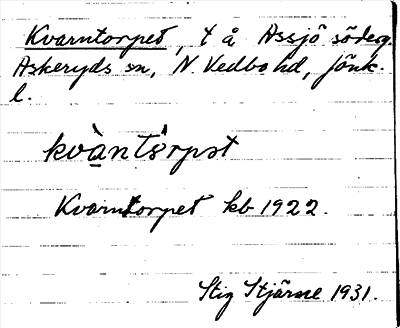 Kvarntorpet, t å Assjö söderg.
Askeryds sn, N. Vedbo hd, Jönk.
l.
kvàntèrpət
Kvarntorpet kb 1922.
Stig Stjärne 1931.